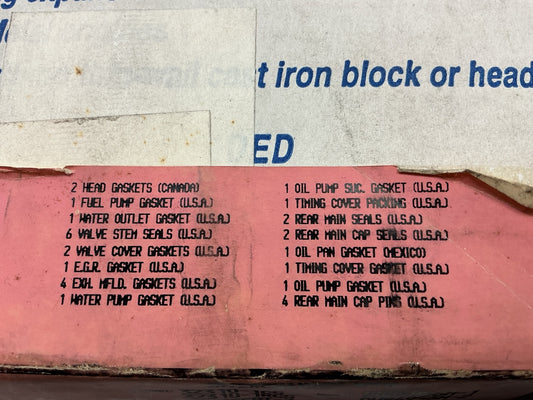 t iron block or head
ED
2 HEAD GASKETS (CANADA)
1 FUEL PUMP GASKET (U.S.A.)
1 WATER OUTLET GASKET (U.S.A.)
6 VALVE STEM SEALS (U.S.A.)
2 VALVE COVER GASKETS (U.S.A.)
1 E.G.R. GASKET (U.S.A.)
4 EXH. MFLD. GASKETS (U.S.A.)
1 WATER PUMP GASKET (U.S.A.)
1 OIL PUMP SUC. GASKET (U.S.A.)
1 TIMING COVER PACKING (U.S.A.)
2 REAR MAIN SEALS (U.S.A.)
2 REAR MAIN CAP SEALS (U.S.A.)
1 OIL PAN GASKET (MEXICO)
1 TIMING COVER GASKET (U.S.A.)
1 OIL PUMP GASKET (U.S.A.)
4 REAR MAIN CAP PINS (U.S.A.)